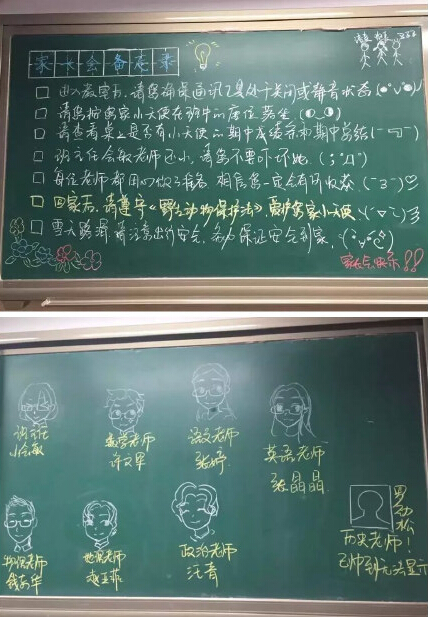 家长会备忘录
□ 进入教室后，请您确保通讯工具处于关闭或静音状态
□ 请您按您家小天使在班中的座位落坐
□ 请查看桌上是否有小天使的期中成绩条和期中总结
□ 班主任会敏老师还小，请您不要吓坏她
□ 每位老师都用心做了准备，相信您一定会有所收获
□ 回家后，请遵守《野生动物保护法》，爱护您家小天使
□ 雪天路滑，请注意出行安全，务必保证安全到家
家长会快乐！！
班主任
小会敏
数学老师
许文军
语文老师
张婷
英语老师
张晶晶
物理老师
地理老师
赵玉菲
政治老师
汪青
罗劲松
历史老师！
已帅到无法显示